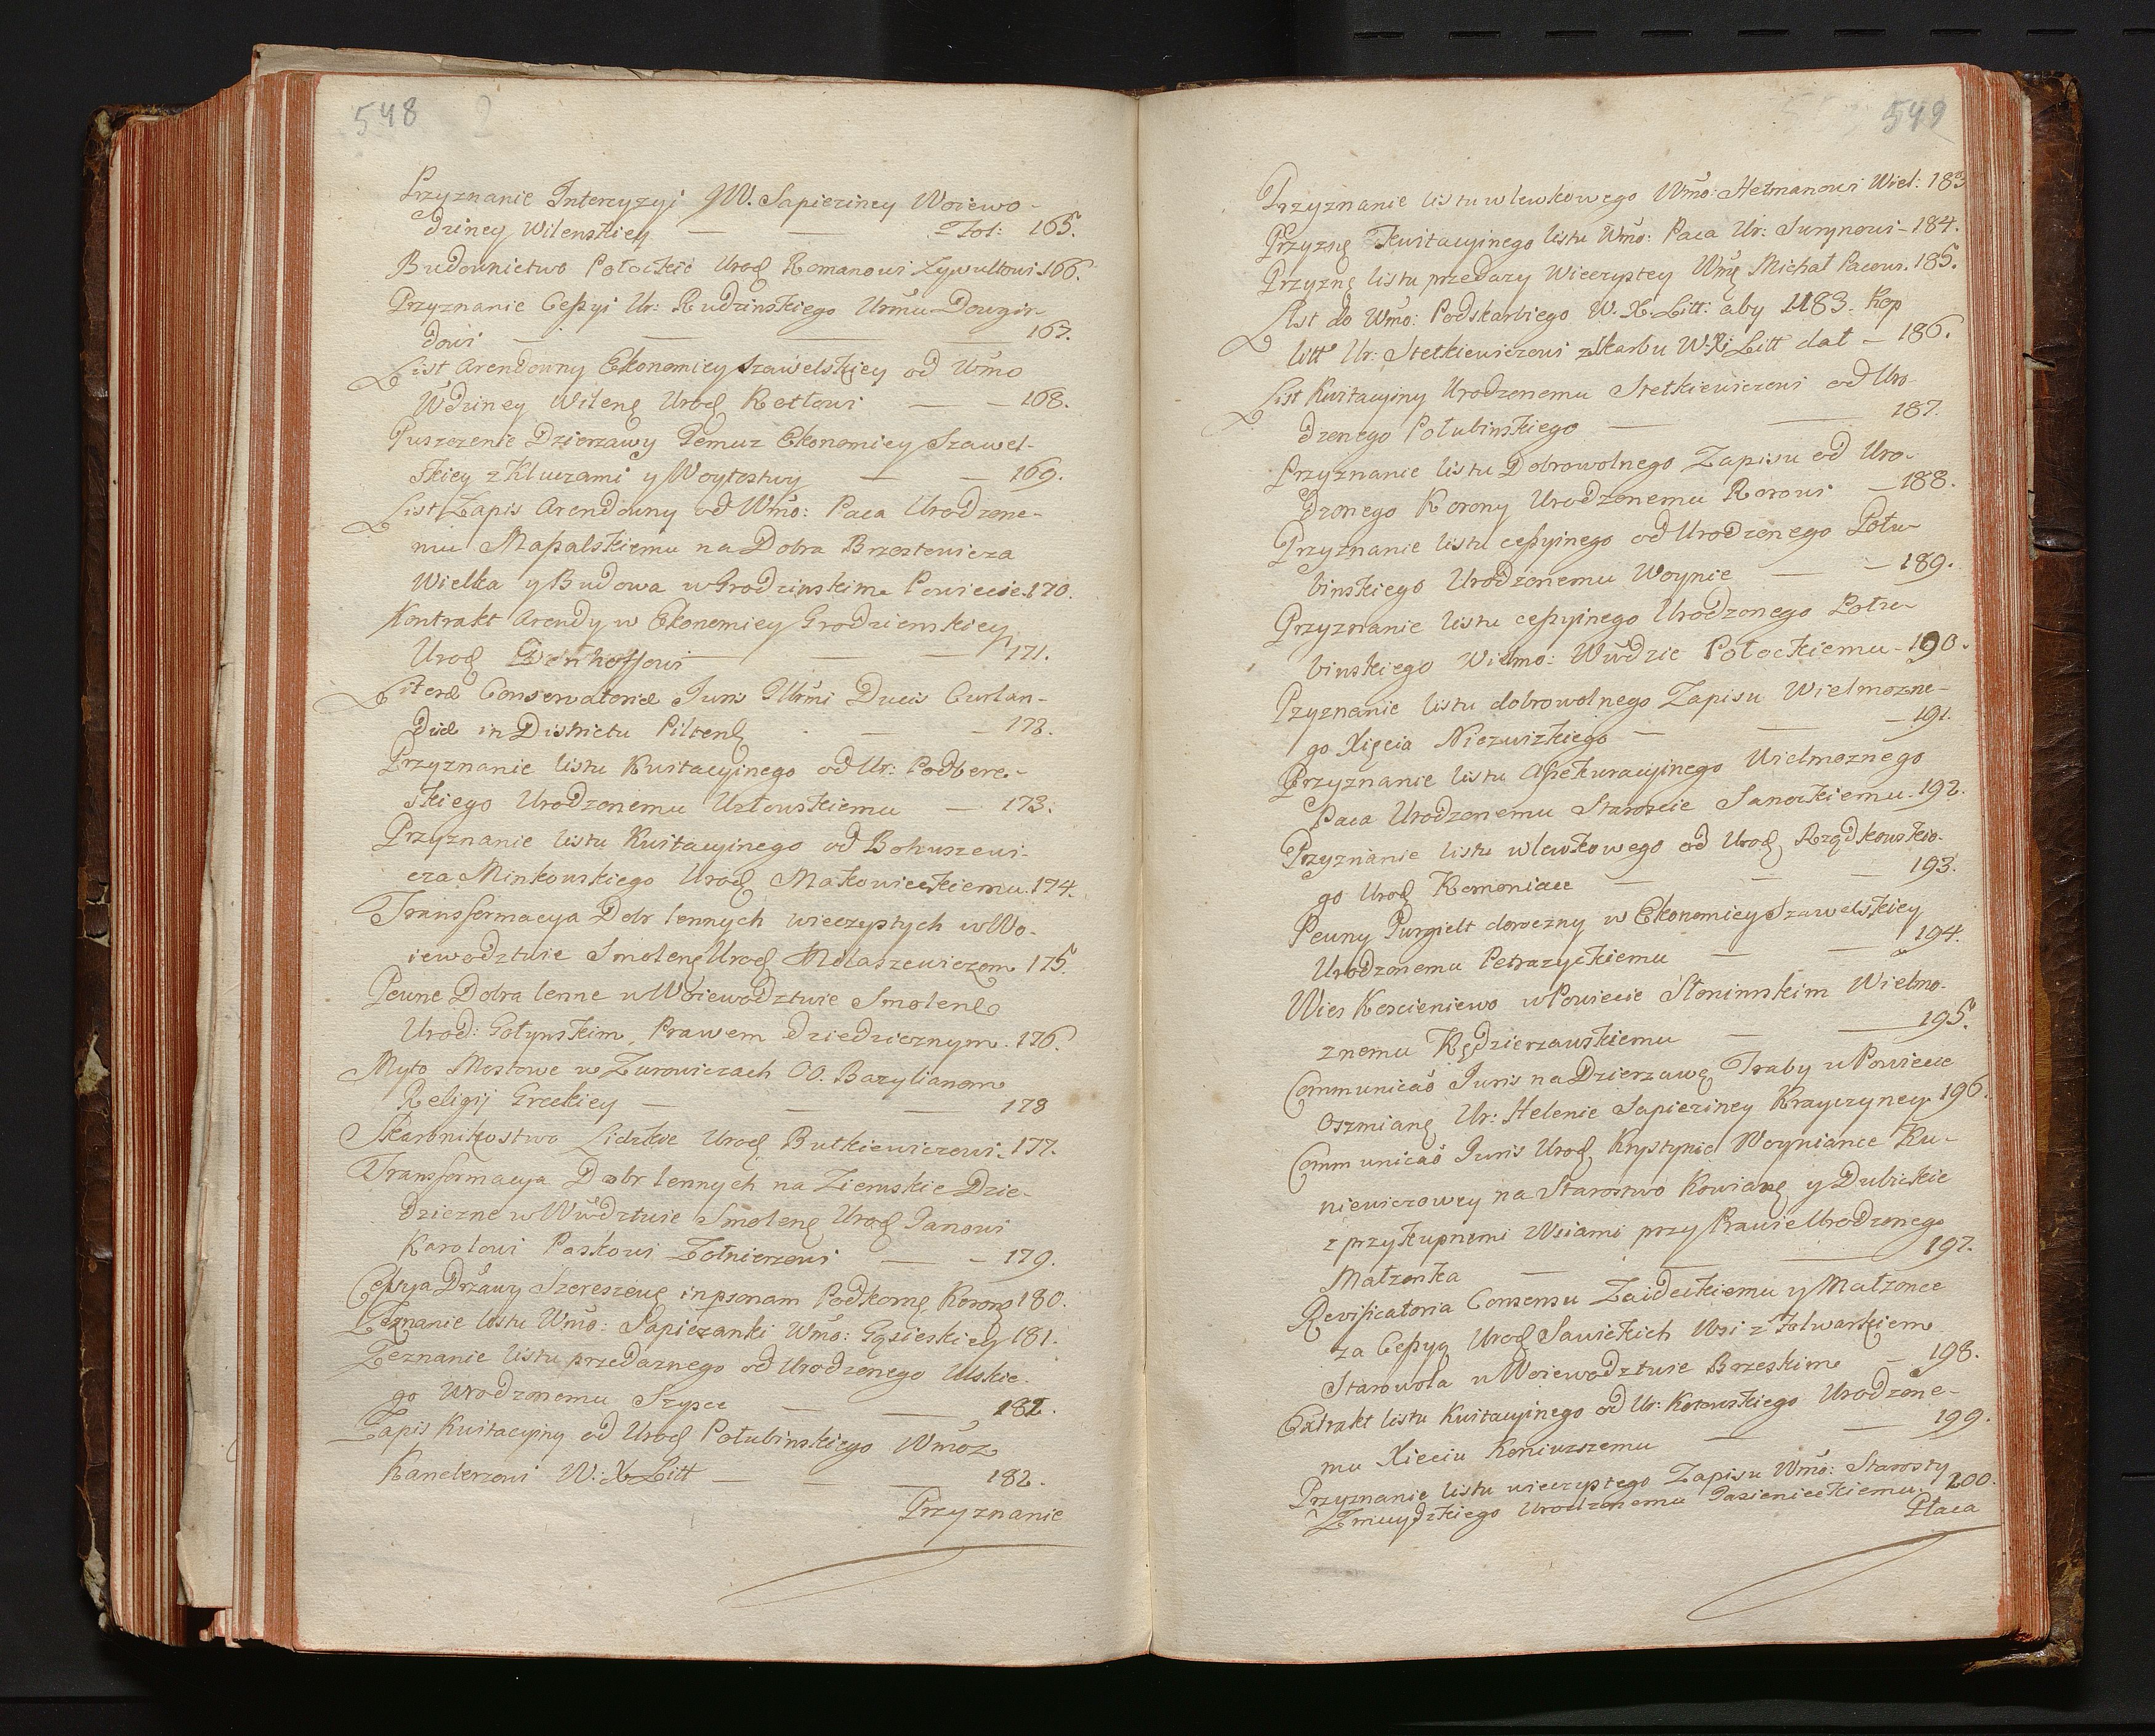 548 2
Przyznanie Intercyzyi JW. Sapieziney Woiewo-
dziney Wilenskiey — — Fol: 165.
Budownictwo Połockie Urod Romanowi Zywultowi 166.
Przyznanie Cessyi Ur: Rudzinskiego Urmu Dowgir-
dowi — — — 167.
List Arendowny Ekonomiey Szawelskiey od Wmo
Wdziney Wilen Urod Rettowi — — 168.
Puszczenie Dzierzawy Temuz Ekonomiey Szawel-
skiey z Kluczami y Woytostwy — — 169.
List Zapis Arendowny od Wmo: Paca Urodzone-
mu Massalskiemu na Dobra Brzostowicza
Wielka y Budowa w Grodzinskim Powiecie. 170.
Kontrakt Arendy w Ekonomiey Grodzienskiey
Urod Denhoffowi — — — 171.
Literæ Conservatoriæ Juris Illrmi Ducis Curlan-
diæ in Districtu Pilten — — 172.
Przyznanie listu Kwitacyinego od Ur: Podbere-
skiego Urodzonemu Uzłowskiemu — 173.
Przyznanie listu Kwitacyinego od Bohuszewi-
cza Minkowskiego Urod Makowieckiemu. 174.
Transformacya Dobr lennych wieczystych w Wo-
iewodztwie Smolen Urod Milaszewiczom 175.
Pewne Dobra lenne w Woiewodztwie Smolen
Urod: Gołynskim, Prawem dziedzicznym. 176.
Myto Mostowe w Zurowiczach OO. Bazylianom
Religij Greckiey — — — 178
Skarbnikostwo Lidzkie Urod Butkiewiczowi. 177.
Transformacya Dobr lennych na Ziemskie Dzie-
dziczne w Wwdztwie Smolen Urod Janowi
Karolowi Paskowi Zołnierzowi — — 179.
Cessya Drzawy Szereszew in psonam Podkom Koron 180.
Zeznanie listu Wmo: Sapiezanki Wmo: Gąsieskiey 181.
Zeznanie listu przedaznego od Urodzonego Ulskie-
go Urodzonemu Szysce — — 182.
Zapis Kwitacyiny od Urod Połubinskiego Wmoz
Kanclerzowi W. X Litt — — — 182.
Przyznanie
549
Przyznanie listu wlewkowego Wmo: Hetmanowi Wiel: 183
Przyzne Kwitacyinego listu Wmo: Paca Ur: Surynowi - 184.
Przyzne listu przedazy wieczystey Wmę Michał Pacowi. 185.
List do Wmo: Podskarbiego W. X. Litt: aby 1183. kop
litt Ur: Stetkiewiczowi z Skarbu W. X. Litt dał — 186.
List Kwitacyiny Urodzonemu Stetkiewiczowi od Uro-
dzonego Połubinskiego — — 187.
Przyznanie listu Dobrowolnego Zapisu od Uro-
dzonego Korony Urodzonemu Rorowi — 188.
Przyznanie listu cessyinego od Urodzonego Połu-
binskiego Urodzonemu Woynie — — 189.
Przyznanie listu cessyinego Urodzonego Połu-
binskiego Wielmo: Wwdzie Połockiemu - 190.
Pzyznanie listu dobrowolnego Zapisu Wielmozne-
go Xięcia Niezwizkiego — — — 191.
Przyznanie listu Assekuracyinego Wielmoznego
Paca Urodzonemu Staroscie Sanockiemu. 192.
Przyznanie listu wlewkowego od Urod, Rządkowskie-
go Urod Komoniace — — — 193.
Pewny Jurgielt doroczny w Ekonomiey Szawelskiey
Urodzonemu Petrazyckiemu — — 194.
Wies Koscieniewo w Powiecie Słonimskim Wielmo-
znemu Kędzierzawskiemu — — 195.
Communicao Juris na Dzierzawę Traby w Powiecie
Oszmian Ur: Helenie Sapieziney Krayczyney. 196.
Communicao Juris Urod, Krystynie Woyniance Ku-
niewiczowey na Starostwo Kowian y Dubickie
z przykupnemi Wsiami przy Prawie Urodzonego
Małzonka — — — 197.
Revificatoria Consensu Zaideckiemu y Małzonce
za Cessyą Urod Sawickich Wsi z Folwarkiem
Starowola w Woiewodztwie Brzeskim — 198.
Extrakt listu Kwitacyinego od Ur: Kotowskiego Urodzone-
mu Xieciu Koniuszemu — — 199.
Przyznanie listu wieczystego Zapisu Wmo: Starosty
Zmuydzkiego Urodzonemu Jasienieckiemu. 200.
Płaca